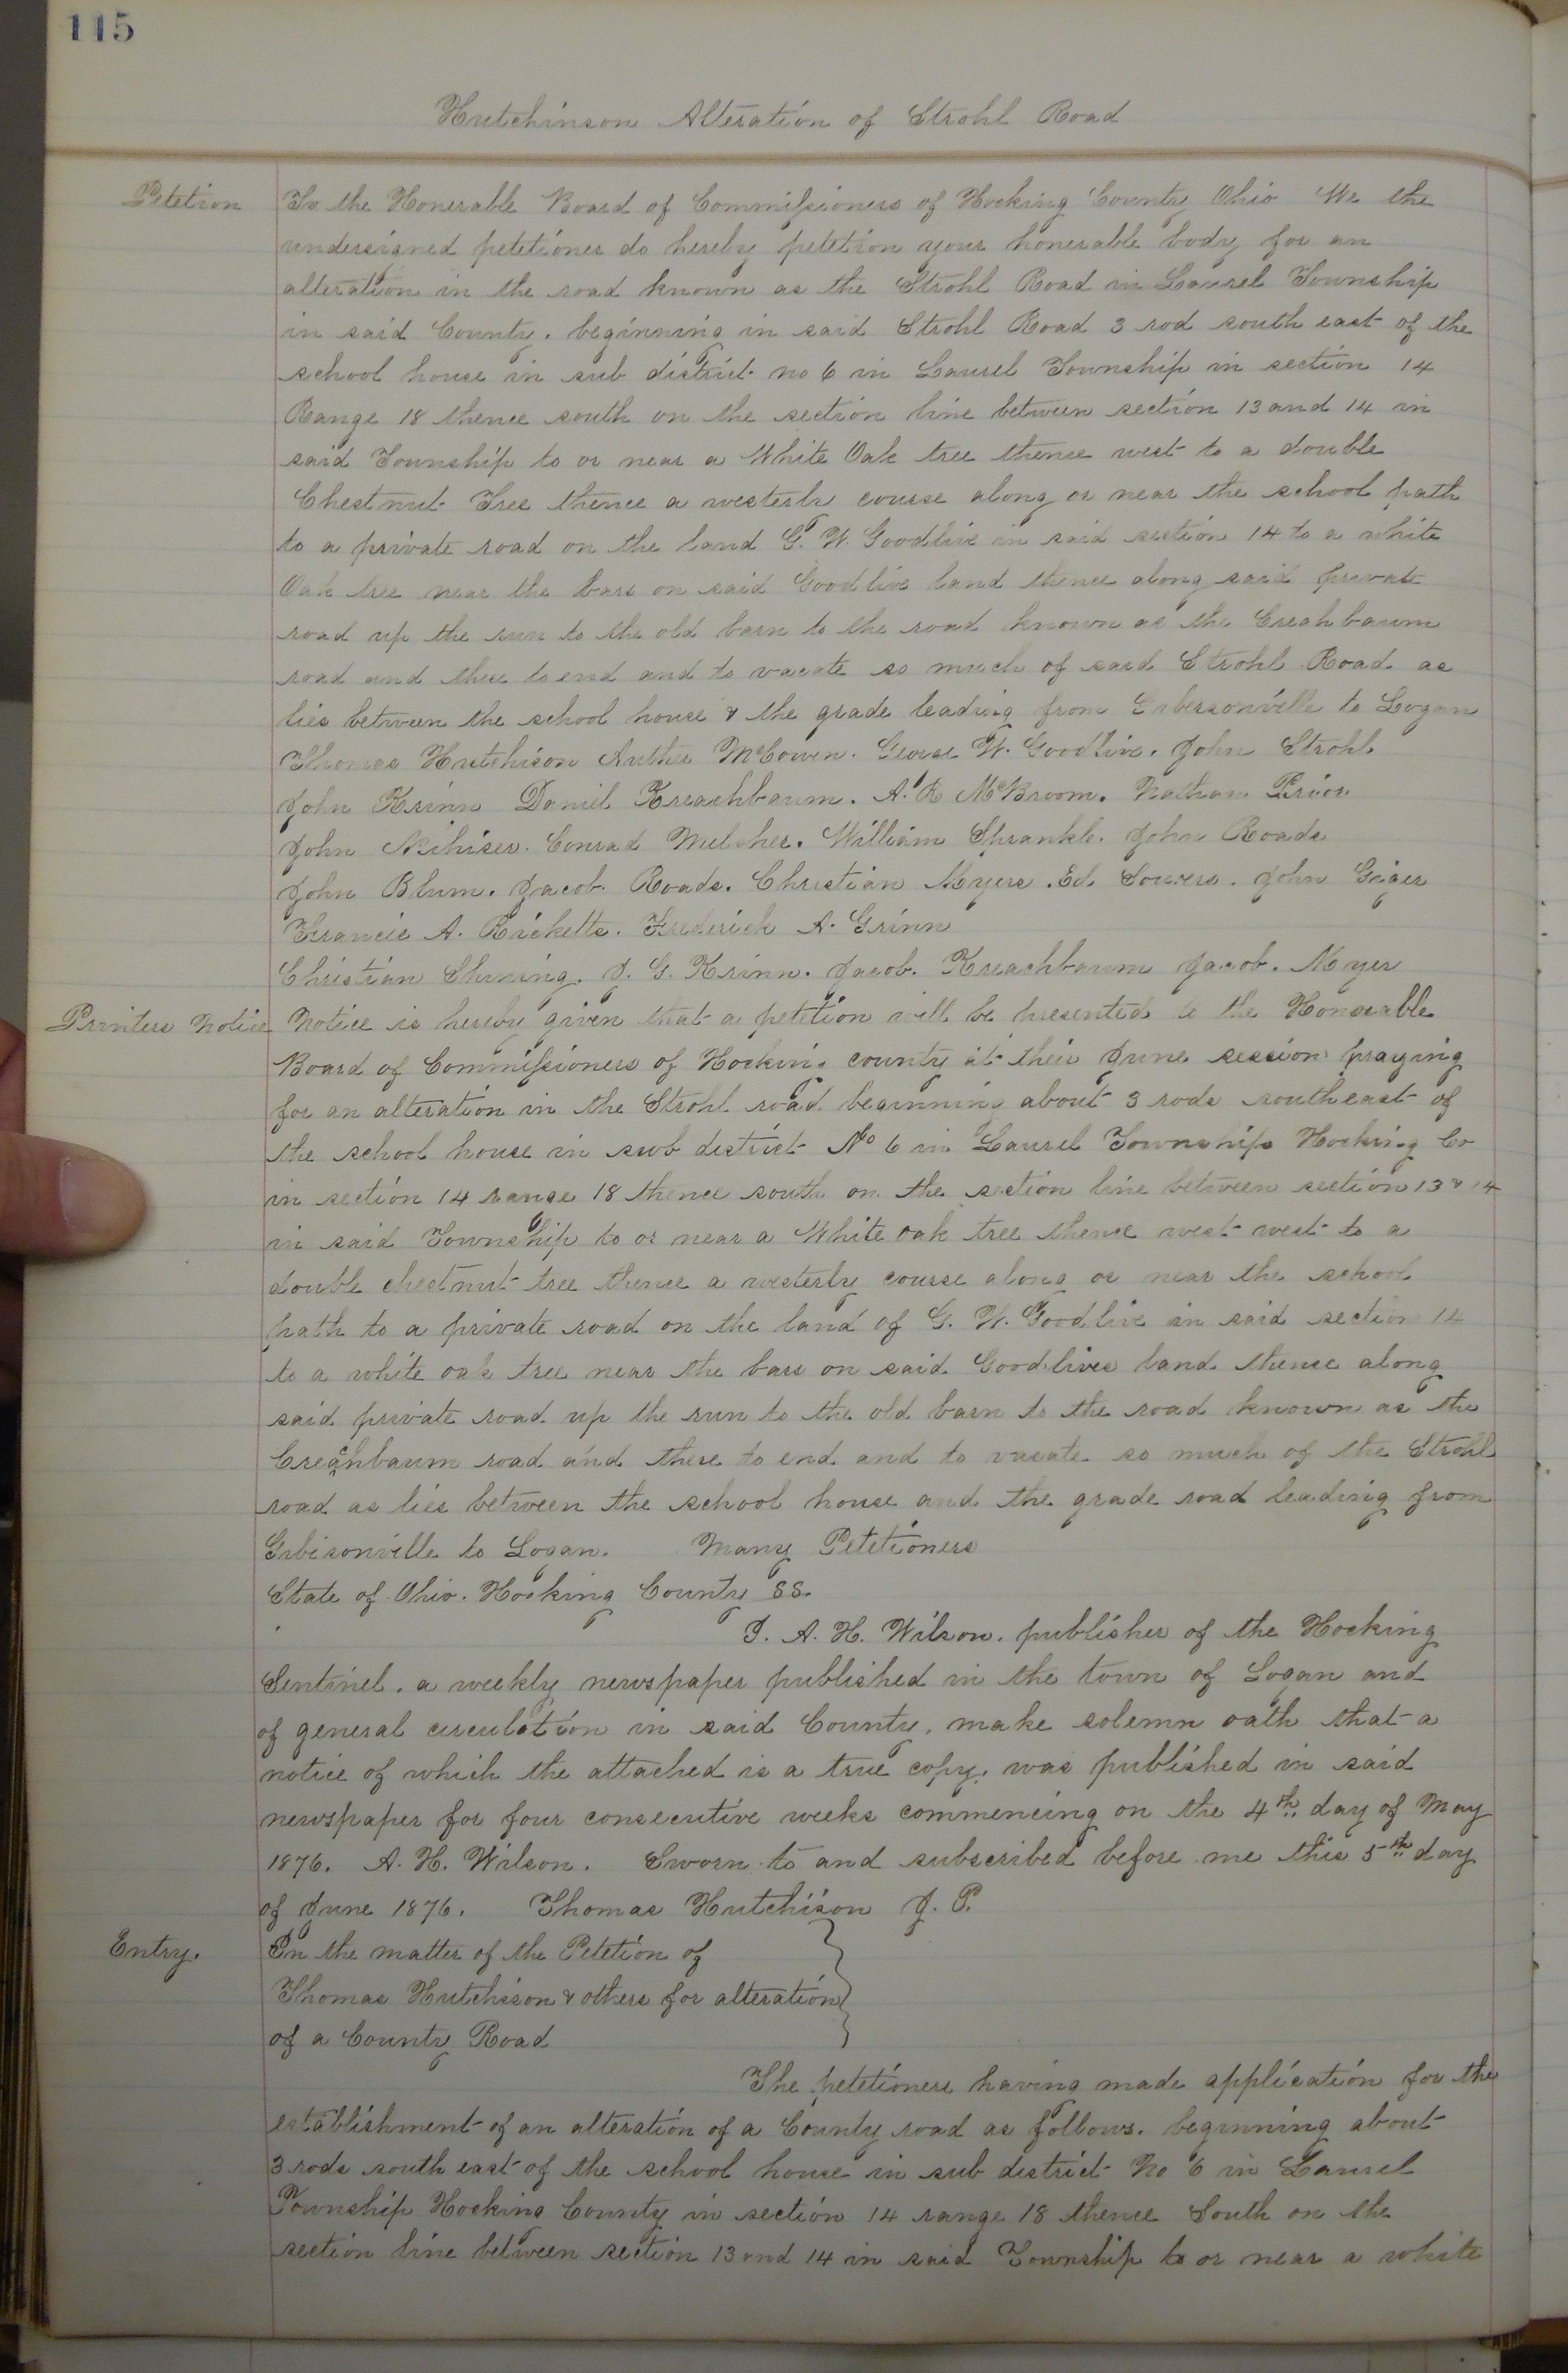 115
Hutchinson Alteration of Strohl Road
Petetion To the Honerable Board of Commissioners of Hocking County Ohio We the
undersigned petetioner do hereby petetion your honerable body for an
alteration in the road known as the Strohl Road in Laurel Township
in said County. beginning in said Strohl Road 3 rod south east of the
school house in sub district no 6 in Laurel Township in section 14
Range 18 thence south on the section line between section 13 and 14 in
said Township to or near a White Oak tree thence west to a double
Chestnut Tree thence a westerly course along or near the school path
to a private road on the land G. W. Goodlive in said section 14 to a white
Oak tree near the bars on said Goodlive land thence along said private
road up the run to the old barn to the road known as the Creahbaum
road and there to end and to vacate so much of said Strohl Road as
lies between the school house & the grade leading from to Logan
Thomas Hutchison Auther McCowen. George W. Goodlive. John Strohl.
John Krinn Daniel Kreachbaum. A. R McBroom. Nathan Price.
John Nihiser. Conrad Melcher. William Shrankle. John Roads
John Blum. Jacob Roads. Christian Myers. Ed. Sowers. John Geiger
Francis A. Ricketts. Frederick A. Grinn
Christian Shining. J. G. Krinn. Jacob. Kreachbaum Jacob. Myer
Printers Notice Notice is hereby given that a petetion will be presented to the Honorable
Board of Commissioners of Hocking county at their June session praying
for an alteration in the Strohl road beginning about 3 rods southeast of
the school house in sub district No 6 in Laurel Township Hocking Co
in section 14 range 18 thence south on the section line between section 13 & 14
in said Township to or near a White oak tree thence west west to a
double chestnut tree thence a westerly course along or near the school
path to a private road on the land of G. W. Goodlive in said section 14
to a white oak tree near the bars on said Goodlives land thence along
said private road up the run to the old barn to the road known as the
Creachbaum road and there to end and to vacate so much of the Strohl
road as lies between the school house and the grade road leading from
Gibisonville to Logan. Many Petetioners
State of Ohio. Hocking County SS.
I. A. H. Wilson. publisher of the Hocking
Sentinel. a weekly newspaper published in the town of Logan and
of general circulation in said County. make solemn oath that a
notice of which the attached is a true copy. was published in said
newspaper for four consecutive weeks commencing on the 4th day of May
1876. A. H. Wilson. Sworn to and subscribed before me this 5th day
of June 1876. Thomas Hutchison J. P.
Entry. In the matter of the Petetion of
Thomas Hutchison & others for alteration
of a County Road
The petetioners having made application for the
establishment of an alteration of a County road as follows. beginning about
3 rods south east of the school house in sub district No 6 in Laurel
Township Hocking County in section 14 range 18 thence South on the
section line between section 13 and 14 in said Township to or near a white